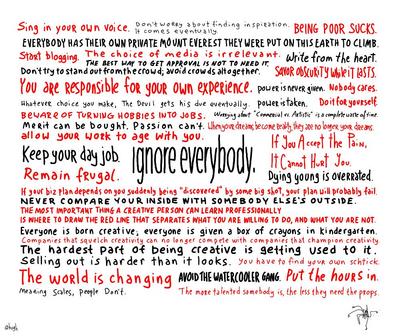 Sing in your own voice. Don't worry about finding inspiration. It comes eventually. BEING POOR SUCKS.
EVERYBODY HAS THEIR OWN PRIVATE MOUNT EVEREST THEY WERE PUT ON THIS EARTH TO CLIMB.
Start blogging. The choice of media is irrelevant. Write from the heart.
THE BEST WAY TO GET APPROVAL IS NOT TO NEED IT.
Don't try to stand out from the crowd; avoid crowds altogether. SAVOR OBSCURITY WHILE IT LASTS.
You are responsible for your own experience. power is never given. Nobody cares.
Whatever choice you make, The Devil gets his due eventually. power is taken. Do it for yourself.
BEWARE OF TURNING HOBBIES INTO JOBS. Worrying about "Commercial vs. Artistic" is a complete waste of time.
Merit can be bought. Passion can't. When your dreams become reality, they are no longer your dreams.
allow your work to age with you. If You Accept the Pain,
Keep your day job. ignore everybody. It Cannot Hurt You.
Remain frugal. Dying young is overrated.
If your biz plan depends on you suddenly being "discovered" by some big shot, your plan will probably fail.
NEVER COMPARE YOUR INSIDE WITH SOMEBODY ELSE'S OUTSIDE.
THE MOST IMPORTANT THING A CREATIVE PERSON CAN LEARN PROFESSIONALLY
IS WHERE TO DRAW THE RED LINE THAT SEPARATES WHAT YOU ARE WILLING TO DO, AND WHAT YOU ARE NOT.
Everyone is born creative; everyone is given a box of crayons in kindergarten.
Companies that squelch creativity can no longer compete with companies that champion creativity.
The hardest part of being creative is getting used to it.
Selling out is harder than it looks. You have to find your own schtick.
The world is changing AVOID THE WATERCOOLER GANG. Put the hours in.
Meaning Scales, People Don't. The more talented somebody is, the less they need the props.
@hugh